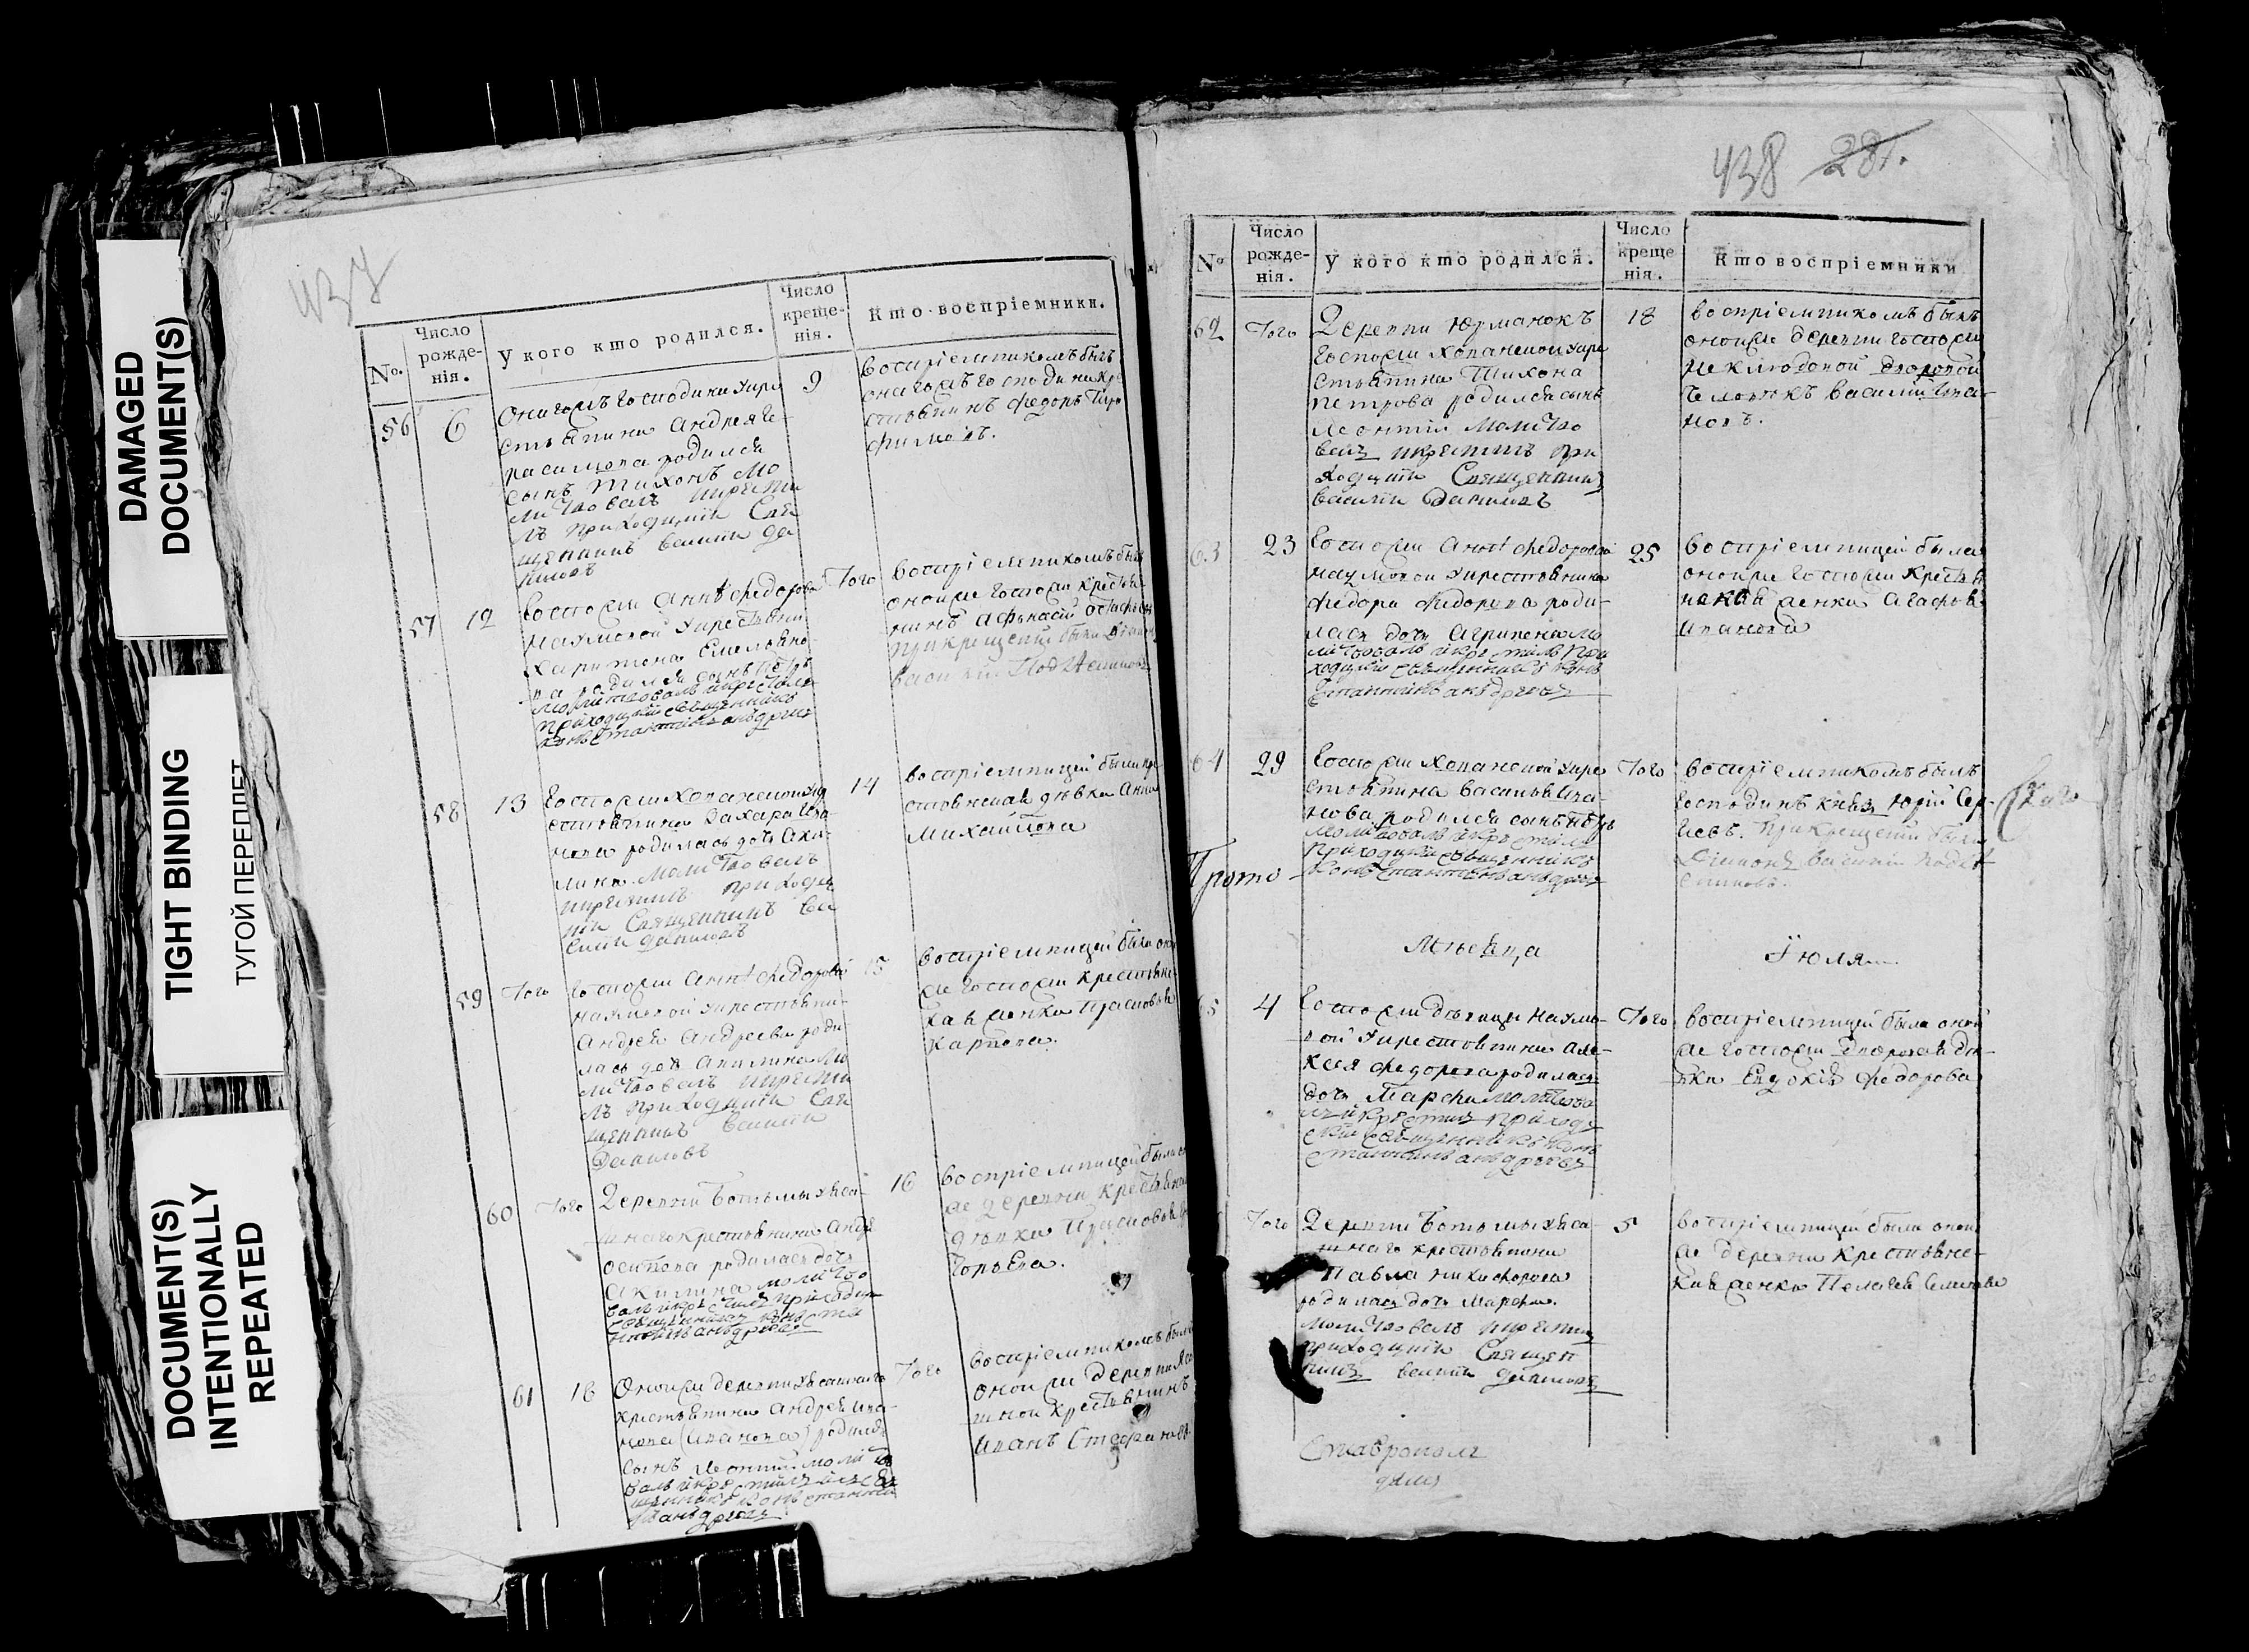 DAMAGED
DOCUMENT(S)
TIGHT BINDING
ТУГОЙ ПЕРЕПЛЕТ
DOCUMENT(S)
INTENTIONALLY
REPEATED
437
№.
Число
рожде-
нія.
У кого кто родился.
Число
креще-
нія.
Кто воспріемники.
56
6
Онагожъ господина у кре
стьянина Андрея Ге-
расимова родился
сынъ Тихонъ мо
литвовалъ и крести
лъ приходцкій Свя
щенникъ Василій Да
ниловъ
9
воспріемникомъ былъ
онагожъ господина кре
стьянинъ Федоръ
57
12
Госпожи Анны Федоровой
Наумовой у крестьяни
Харитона Емельяно-
ва родился сынъ Петръ
молитвовалъ и крестилъ
приходцкій священникъ
Констаньтинъ аньдреевъ
Того
воспріемникомъ былъ
оной же госпожи крестья
нинъ Афанасій
при крещеніи былъ
Василій
58
13
крестьянина Захара Ива
нова родилась дочь Аки-
лина Молитвовалъ
и крестилъ приходц
кій Священникъ Ва
силій Даниловъ
14
воспріемницей была кре
стьянская дѣвка Анна
Михайлова
59
Того
Госпожи Анны Федоровой
Наумовой у крестьяни-
Андрея Андреева роди
лась дочь Акилина Мо
литвовалъ и крести
лъ приходцкій Свя
щенникъ Василій
Даниловъ
15
воспріемницей была оно
же госпожи крестьянс-
кая женка Прасковья
Карпова.
60
Того
Деревни Ботьмы Ясаш-
наго крестьянина Андре
Осипова родилась дочь
Акилина молитво
валъ и крестилъ приходцк
священникъ Конста
нтинъ аньдреевъ
16
воспріемницей была
же деревни крестьянска
дѣвка Прасковья
61
16
Оной же деревни Ясашнаго
крестьянина Андрея Ива-
нова (Иванова) родился
сынъ Леонтій молитво
валъ и крестилъ
щенникъ Константи
аньдреевъ
Того
воспріемникомъ былъ
оной же деревни Яса
шной крестьянинъ
Иванъ Стефановъ
438
281.
№
Число
рожде-
нія.
У кого кто родился.
Число
креще
нія.
Кто воспріемники
62
Того
Деревни Юрманокъ
стьянина Тихона
Петрова родился сынъ
Леонтій Молитво
валъ и крестилъ при
ходцкій Священникъ
Василій Даниловъ
18
воспріемникомъ былъ
оной же деревни госпожи
Неклюдовой дворовой
человѣкъ Василій Ива-
новъ.
63
23
Госпожи Анны Федоровой
Наумовой у крестьянина
Федора Федорова роди-
лась дочь Агрипена мо
литвовалъ и крестилъ при
ходцкій священникъ Конъ
стантинъ аньдреевъ
25
воспріемницей была
оной же госпожи крестья
нская женка Агафья
Иванова
64
29
стьянина Василья Ива-
нова родился сынъ Петръ
молитвовалъ и крестилъ
приходцкій священникъ
Констаньтинъ аньдреевъ
Прото
Того
воспріемникомъ былъ
господинъ князь Юрій Сер-
геевъ. При крещеніи былъ
Діаконъ Василій
Мѣсяца
Іюля
65
4
Госпожи дѣвицы Наумо-
вой у крестьянина Але-
ксея Федорова родилась
дочь Марфа молитвова
лъ и крестилъ приходц
кій священникъ Конъ
стантинъ аньдреевъ
Того
воспріемницей была оной
же госпожи дворовая дѣ-
вка Евдокія Федорова
Того
Деревни Ботьмы Яса-
шнаго крестьянина
Павла Никифорова
родилась дочь Марфа.
Молитвовалъ и крестилъ
приходцкій Священ
никъ Василій Даниловъ
5
воспріемницей была оной
же деревни крестьянс-
кая женка Пелагея Семенова
Ставропол